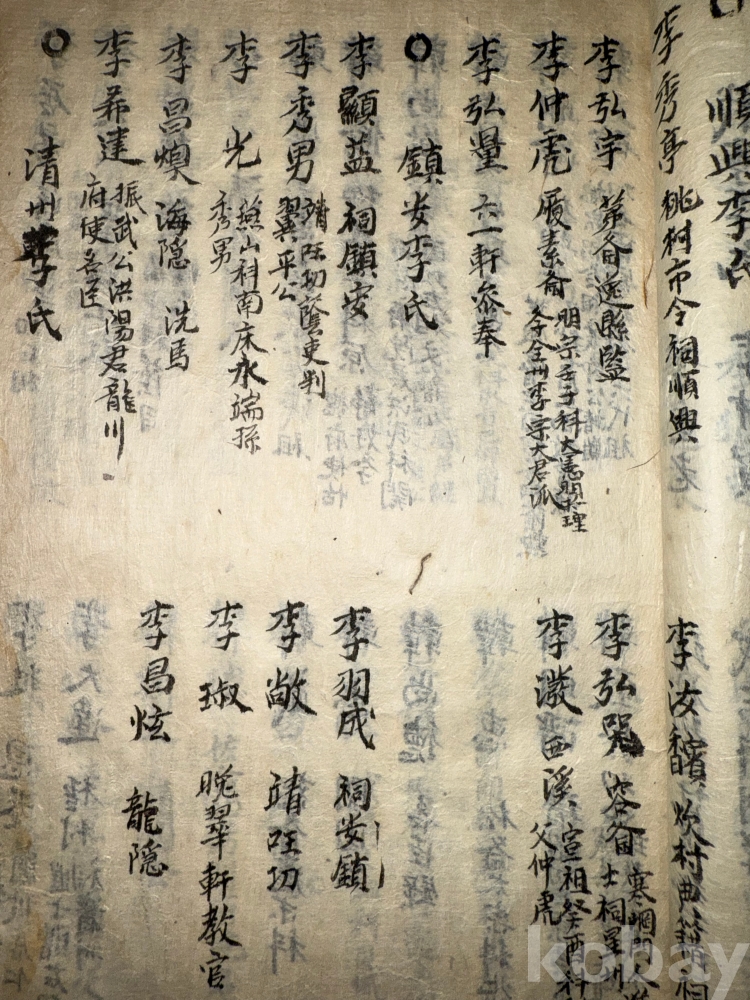 順興李氏
李秀亭 桃村市令祠順興
李汝馪 炊村典籍祠
李弘宇 茅斋逸縣監
李弘器 容斋 寒岡門人 士祠星州
李仲虎 履素斋 明宗壬子科大憲明理 李全州李宗大君派
李潑 西溪 宣祖癸酉科 父仲虎
李弘量 六一軒叅奉
○ 鎮安李氏
李顯益 祠鎮安
李羽成 祠安鎮
李秀男 靖 功蔭吏判 翼平公
李敞 靖 功
李光 燕山科南床永端孫 秀男
李琡 晩翠軒教官
李昌煥 海隠 洗馬
李昌炫 龍隠
李希建 振武公洪陽君龍川 府使名臣
○ 清州李氏
kobay